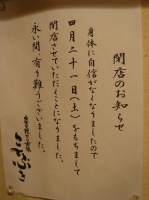 閉店のお知らせ
身体に自信がなくなりましたので
四月二十一日(土)をもちまして
閉店させていただくことになりました。
永い間、有り難うございました。